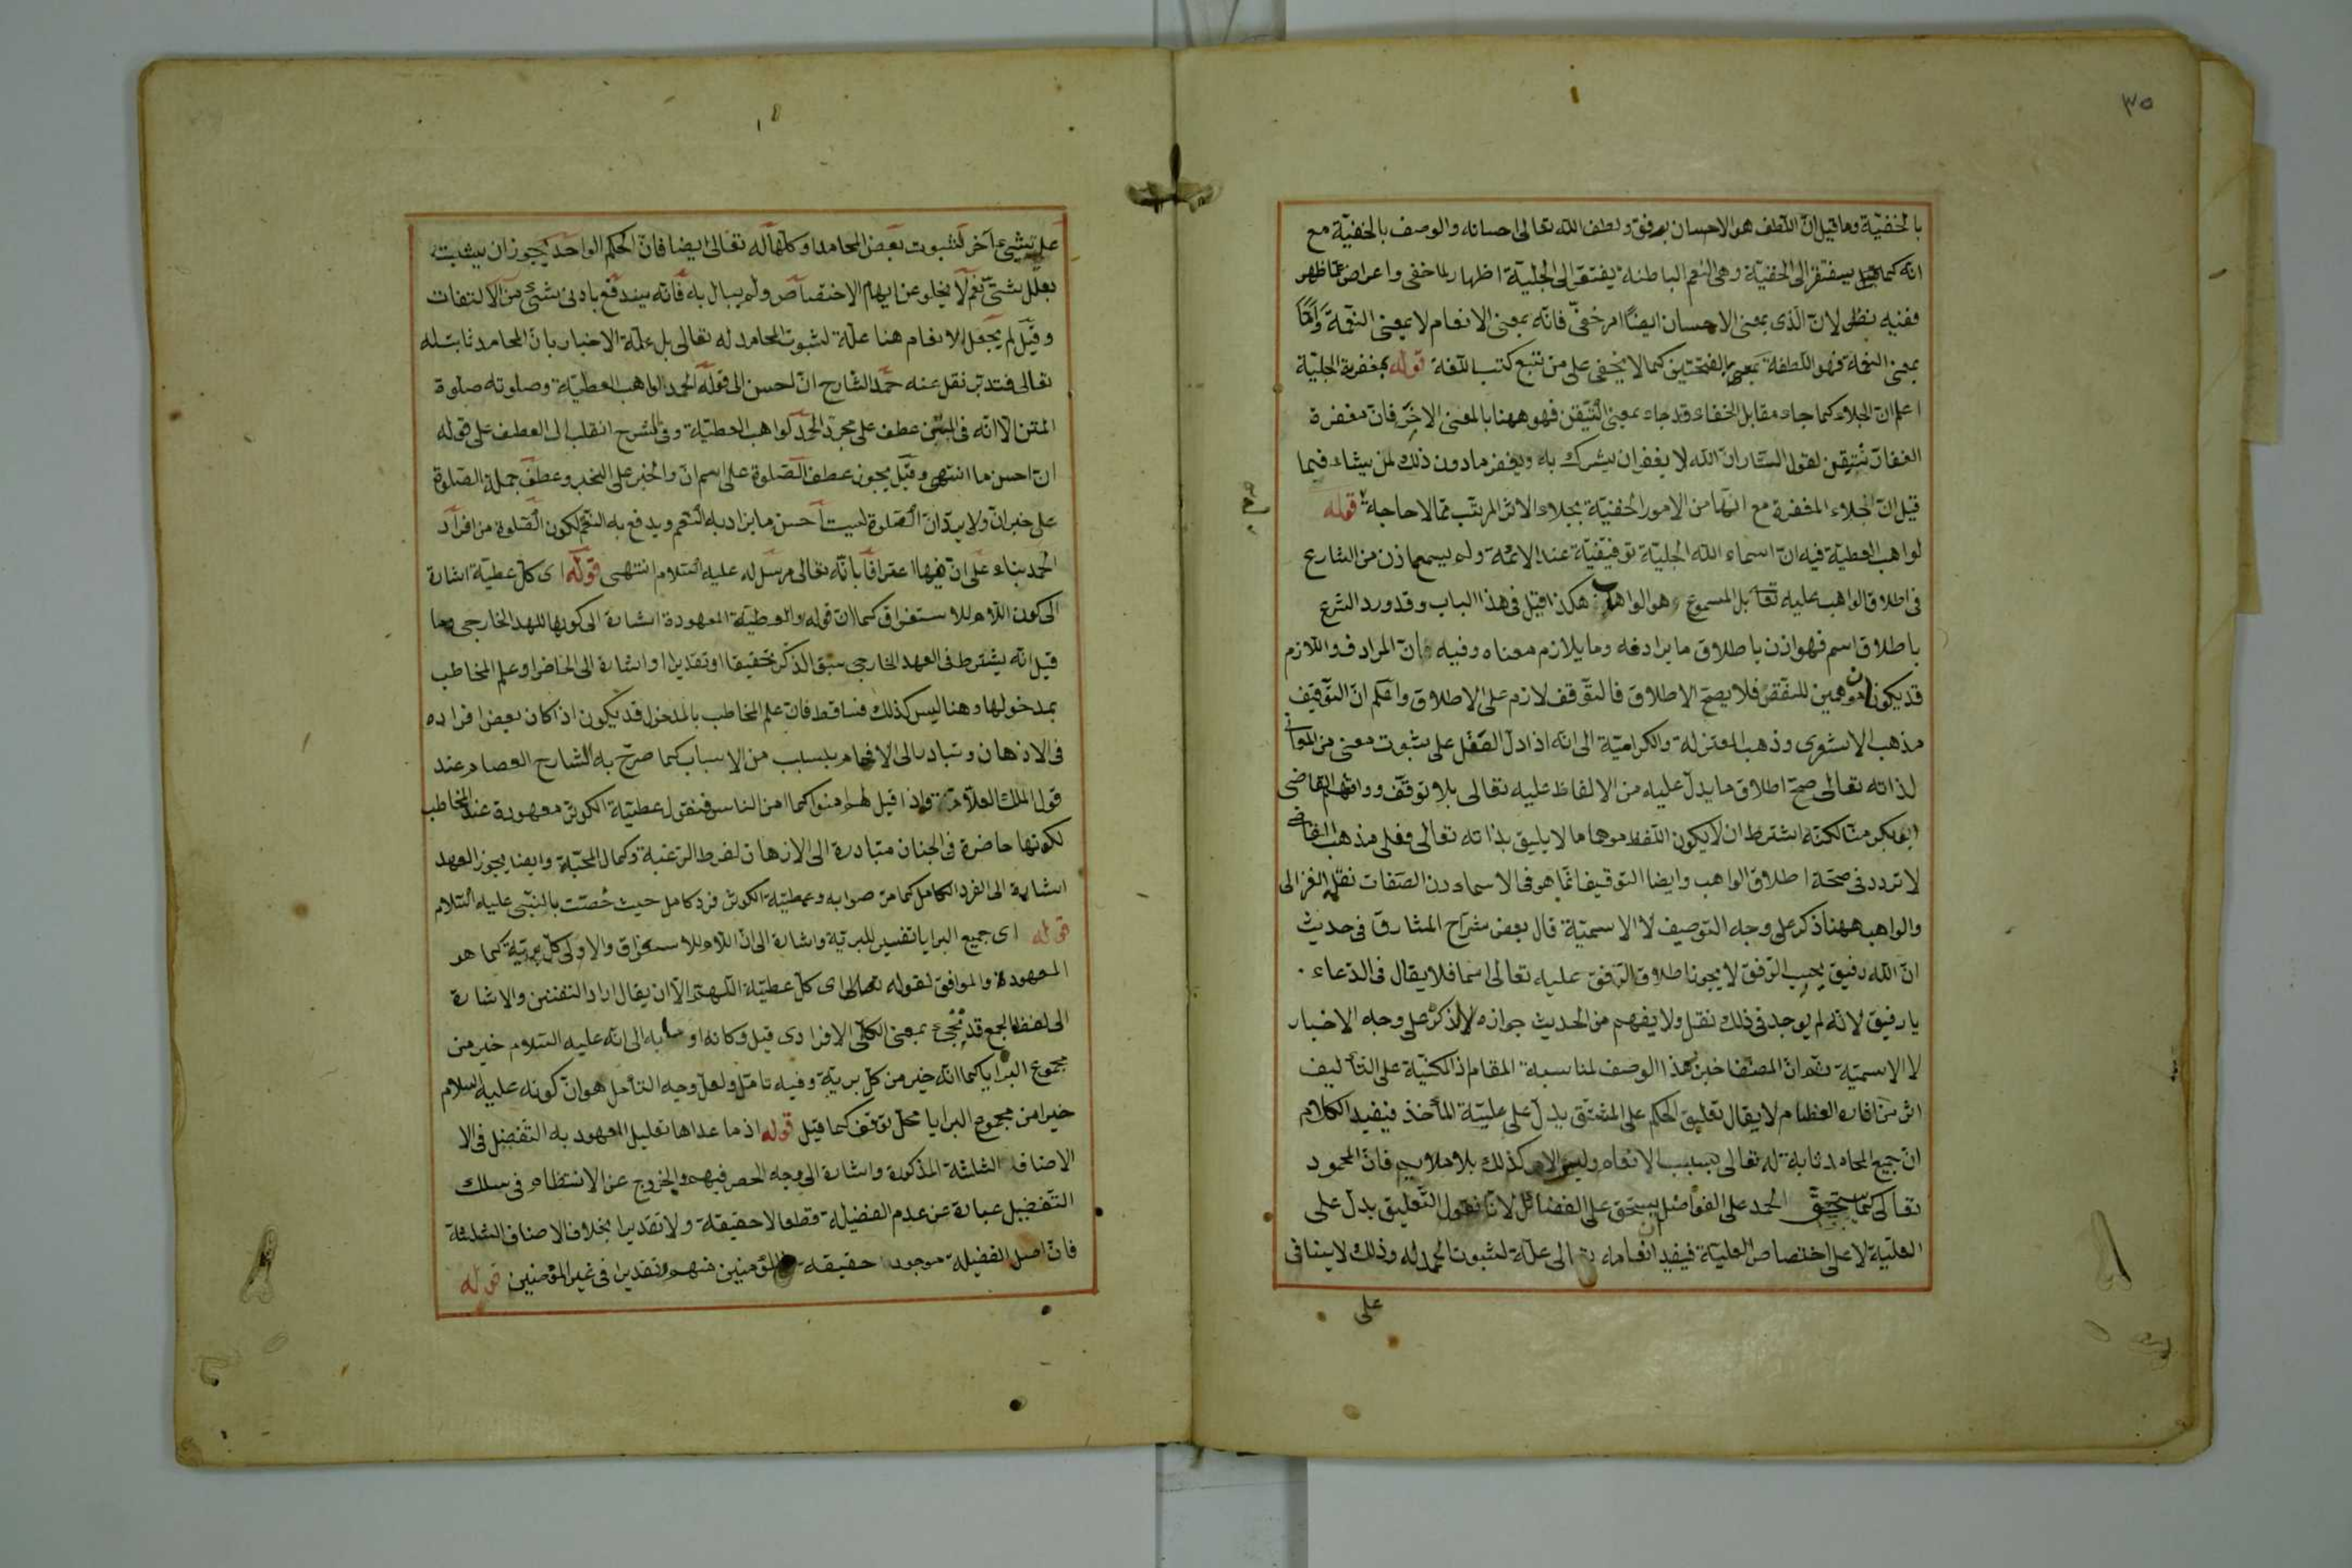 ٣٥
بالخفيّة وما قيل انّ اللّطف هو الاحسان برفق ولطف الله تعالى احسانه والوصف بالخفيّة مع
انّه كما قيل يفتقر الى الخفيّة وهى النعم الباطنة يفتقر الى الجليّة اظهار لما خفى واعراض عمّا ظهر
ففيه نظر لانّ الّذى بمعنى الاحسان ايضًا امر خفىّ فانّه بمعنى الانعام لا بمعنى النعمة وامّا
بمعنى النعمة فهو اللّطفة بمعنى بالفتحتين كما لا يخفى على من تتبع كتب اللّغة قوله بمغفرة الجليّة
اعلم انّ الجلاء كما جاء مقابل الخفاء وقد جاء بمعنى التّيقن فهو ههنا بالمعنى الاخر فانّ مغفرة
الغفار متيقن لقول الستّار انّ الله لا يغفر ان يشرك به ويغفر ما دون ذلك لمن يشاء فيما
قيل انّ الجلاء المغفرة مع انّها من الامور الخفيّة بجلاء الاثر المرتّب ممّا لا حاجة قوله
لواهب العطيّة فيه انّ اسماء الله الجليّة توقيفيّة عند الائمّة ولم يسمع اذن من الشارع
فى اطلاق الواهب عليه تعا بل المسموع هو الواهاب هكذا قيل فى هذا الباب وقد ورد الشرع
باطلاق اسم فهو اذن باطلاق ما يرادفه وما يلازم معناه وفيه فانّ المرادف واللازم
قد يكونان موهمين للنقص فلا يصحّ الاطلاق فالتوقف لازم على الاطلاق واعلم انّ التوقيف
مذهب الاشعرى وذهب المعتزلة والكراميّة الى انّه اذا دلّ العقل على ثبوت معنى من المعانى
لذاته تعالى صحّ اطلاق ما يدلّ عليه من الالفاظ عليه تعالى بلا توقّف ووافقهم القاضى
ابو بكر منّا لكنّه اشترط ان لا يكون اللّفظ موهما ما لا يليق بذاته تعالى فعلى مذهب القاضى
لا تردد فى صحّة اطلاق الواهب وايضا التوقيف انّما هو فى الاسماء دون الصّفات نقله الغزالى
والواهب ههنا ذكر على وجه التوصيف لا الاسميّة قال بعض شرّاح المشارق فى حديث
انّ الله رفيق يحبّ الرّفق لا يجوز اطلاق الرّفق عليه تعالى اسما فلا يقال فى الدّعاء
يا رفيق لانّه لم يوجد فى ذلك نقل ولا يفهم من الحديث جوازه لانّ ذكره على وجه الاخبار
لا الاسميّة ثم انّ المصنّف اختار هذا الوصف لمناسبة المقام اذ المكنيّة على التأليف
اثر من اثاره العظام لا يقال تعليق الحكم على المشتق يدلّ على عليّة المأخذ فيفيد الكلام
انّ جميع المحامد ثابتة له تعالى بسبب الانعام وليس الامر كذلك بلا ملايم فانّ المحمود
تعالى كما يستحقّ الحمد على الفواضل يستحق على الفضائل لانّا نقول التعليق يدلّ على
العليّة لا على اختصاص العليّة فيفيد ان انعامه تعالى علّة لثبوت الحمد له وذلك لا ينافى
على
على شىء آخر لثبوت بعض المحامد او كلّها له تعالى ايضا فانّ الحكم الواحد يجوز ان يثبت
بعلل شتّى نعم لا يخلو عن ايهام الاختصاص ولم يبال به فانّه يندفع بادنى شىء من الالتفات
وقيل لم يجعل الانعام هنا علّة لثبوت المحامد له تعالى بل علّة الاخبار بانّ المحامد ثابتة له
تعالى فتدبّر نقل عنه حمد الشّارح انّ احسن الى قوله الحمد لواهب العطيّة وصلوته صلوة
المتن الا انّه فى المتن عطف على مجرّد الحمد لواهب العطيّة وفى الشرح انقلب الى العطف على قوله
انّ احسن ما انتهى وقيل يجوز عطف الصّلوة على اسم انّ والخبر على الخبر وعطف جملة الصّلوة
على خبر انّ ولا يبد انّ الصّلوة ليست احسن ما يزاد به النّعم ويدفع به النقم لكون الصّلوة من افراد
الحمد بناء على انّ فيها اعترافا بانّه تعالى مرسل له عليه السّلام انتهى قوله اى كلّ عطيّة اشارة
الى كون اللّام للاستغراق كما انّ قوله والعطيّة المعهودة اشارة الى كونها للعهد الخارجى وما
قيل انّه يشترط فى العهد الخارجى سبق الذّكر تحقيقا او تقديرا او اشارة الى الحاضر او علم المخاطب
بمدخولها وهنا ليس كذلك فساقط فانّ علم المخاطب بالمدخول قد يكون اذا كان بعض افراده
فى الاذهان وتبادر الى الافهام بسبب من الاسباب كما صرّح به الشارح العصام عند
قول الملك العلّام واذا قيل لهم امنوا كما امن الناس فنقول عطيّة الكوثر معهودة عند المخاطب
لكونها حاضرة فى الجنان متبادرة الى الاذهان لفرط الرّغبة وكمال المحبّة وايضا يجوز العهد
اشارة الى الفرد الكامل كما مرّ صوابه وعطيّة الكوثر فرد كامل حيث خصّت بالنّبى عليه السّلام
قوله اى جميع البرايا تفسير للبريّة واشارة الى انّ اللّام للاستغراق والاولى كلّ بريّة كما هو
المعهودة والموافق لقوله تعالى اى كلّ عطيّة اللّهمّ الّا ان يقال اراد التفنن والاشارة
الى لفظ الجمع قد يجىء بمعنى الكلّى الافرادى قيل وكانه اومأ به الى انّه عليه السّلام خير من
مجموع البرايا كما انّه خير من كلّ بريّة وفيه تامّل ولعلّ وجه التأمل هو انّ كونه عليه السلام
خيرا من مجموع البرايا محلّ توقّف كما قيل قوله اذ ما عداها تعليل المعهود به التّفضيل فى الا
الاصناف الثلثة المذكورة واشارة الى وجه الحصر فيهم والخروج عن الانتظام فى سلك
التّفضيل عبارة عن عدم الفضيلة قطعا لا حقيقة ولا تقديرا بخلاف الاصناف الثلثة
فانّ اصل الفضيلة موجود حقيقة المؤمنين منهم وتقديرا فى غير المؤمنين قوله